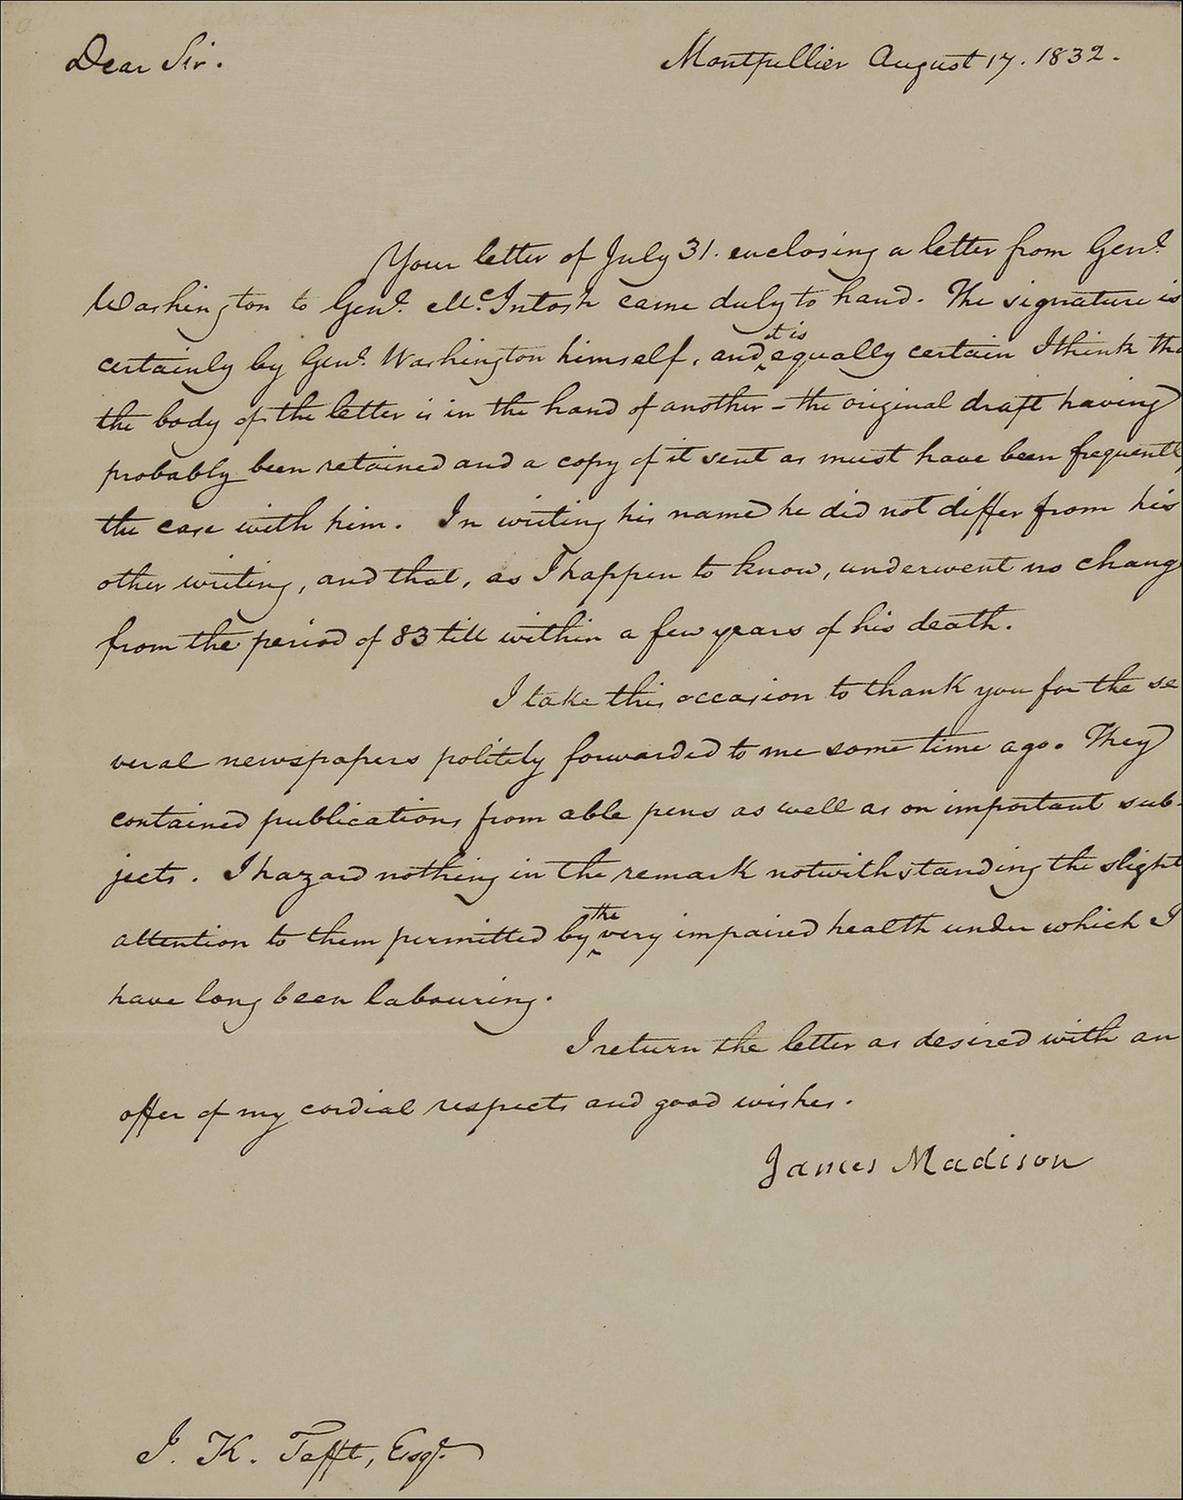 Dear Sir.
Montpellier August 17. 1832.
Your letter of July 31. enclosing a letter from Genl.
Washington to Genl. McIntosh came duly to hand. The signature is
it is
certainly by Genl. Washington himself, and ‸ equally certain I think tha
the body of the letter is in the hand of another - the original draft having
probably been retained and a copy of it sent as must have been frequently
the case with him. In writing his name he did not differ from his
other writing, and that, as I happen to know, underwent no chang
from the period of 83 till within a few years of his death.
I take this occasion to thank you for the se
veral newspapers politely forwarded to me some time ago. They
contained publications from able pens as well as on important sub-
jects. I hazard nothing in the remark notwithstanding the slight
the
attention to them permitted by ‸ very impaired health under which I
have long been labouring.
I return the letter as desired with an
offer of my cordial respects and good wishes.
James Madison
I. K. Tefft, Esqr.